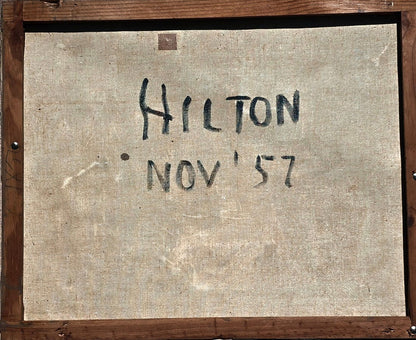 HILTON
NOV '57